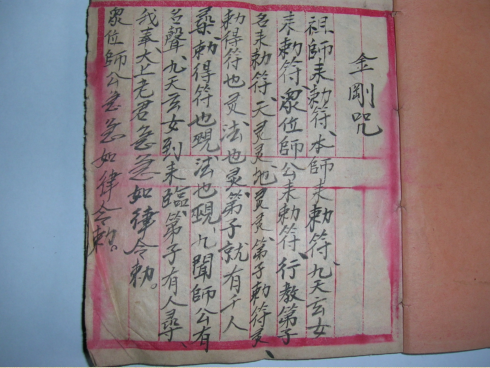 金剛咒
祖師來勅符、本師來勅符、九天玄女
來勅符、眾位師公來勅符、行教弟子
名來勅符、天灵灵地灵灵弟子勅符灵
勅得符也灵法也灵弟子就有千人
尋勅得符也現法也現、凡聞師公有
名聲、九天玄女到來臨、弟子有人尋
我奉太上老君急急如律令勅。
眾位師公急急如律令勅。